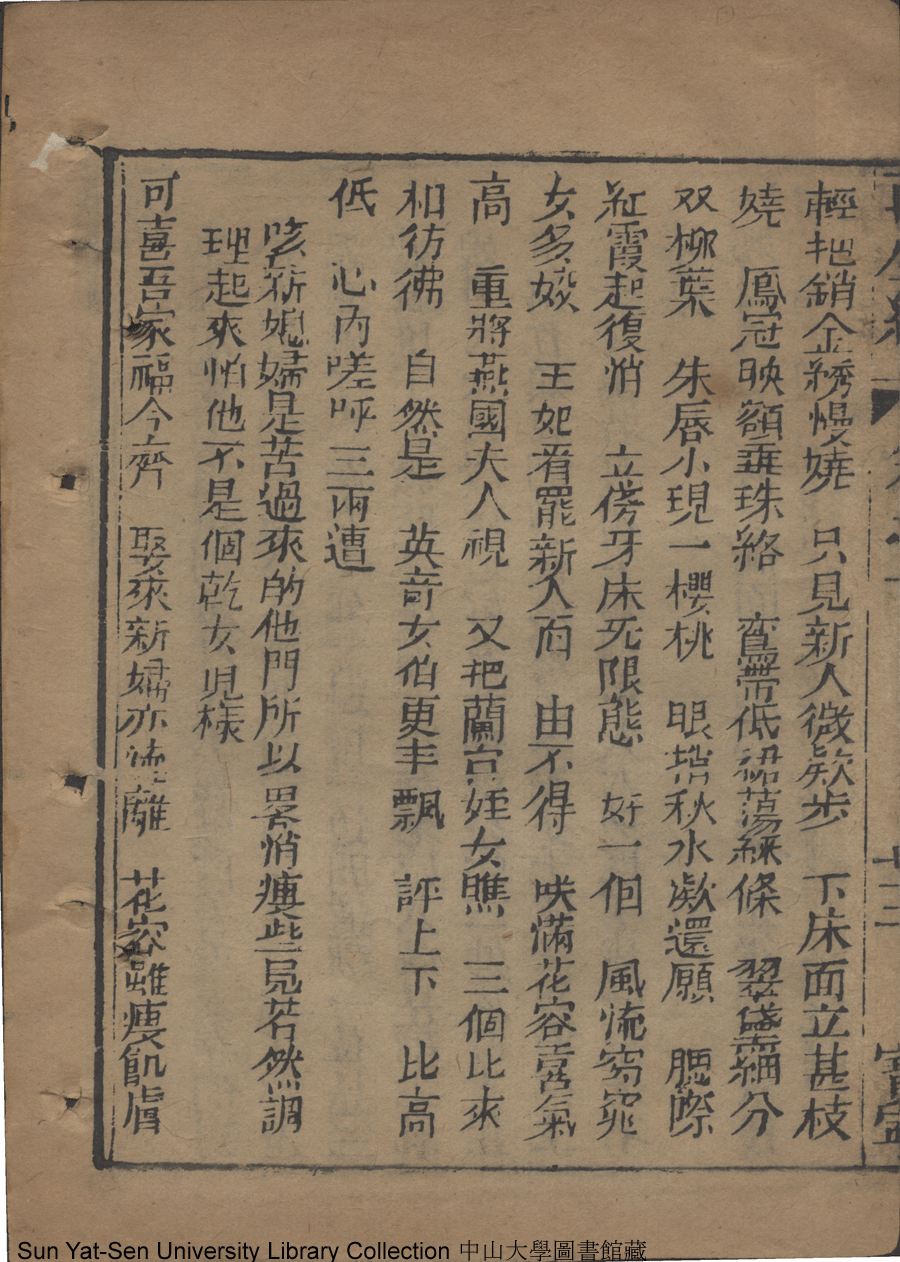 輕把銷金綉幔嬈　只見新人微欵步　下床面立甚枝
嬈　鳳冠映額垂珠絡　鸞帶低裙蕩綵條　翠黛細分
双柳葉　朱唇小現一櫻桃　眼㨪秋水澂還願　腮際
紅霞起復悄　立傍牙床死限態　好一個　風流窈窕
女多姣　王妃看罷新人面　由不得　咲滿花容喜氣
高　重將燕國夫人視　又把蘭宮姪女瞧　三個比來
相彷彿　自然是　英竒女伯更丰飄　評上下　比高
低　心內嗟呼三兩遭
咳新媳婦是苦過來的他門所以畧悄瘦些兒若然調
理起來怕他不是個乾女児樣
可喜吾家福今齊　娶來新婦亦 離　花容雖瘦飢膚
廿三
寳寧
Sun Yat-Sen University Library Collection 中山大學圖書館藏